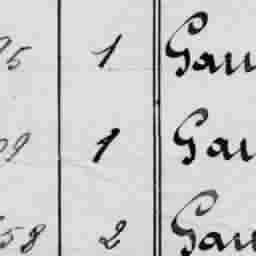 5 1 Gau
9 1 Gau
58 2 Gau